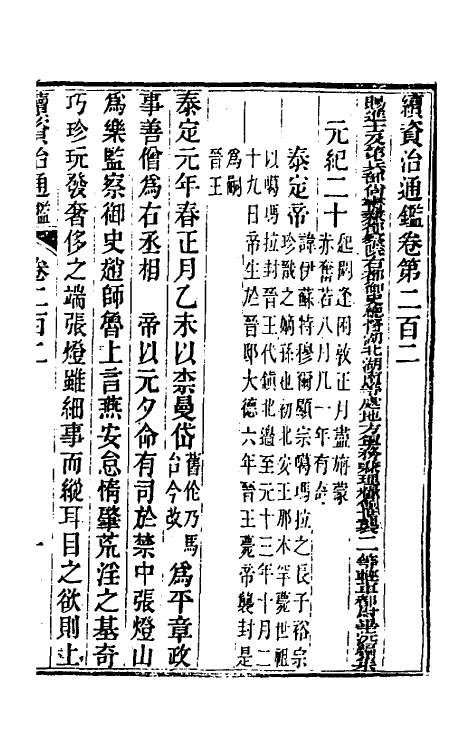 續資治通鑑卷第二百二
賜進士及第兵部尚書兼都察院右都御史總督湖北湖南等處地方軍務兼理糧餉世襲二等輕車都尉畢沅編集
元紀二十 起閼逢困敦正月盡旃蒙
赤奮若八月凡一年有奇
泰定帝 諱伊蘇特穆爾顯宗噶瑪拉之長子裕宗
珍戩之嫡孫也初北安王那木罕薨世祖
以噶瑪拉封晉王代鎮北邊至元十三年十月二
十九日帝生於晉邸大德六年晉王薨帝襲封是
為嗣
晉王
泰定元年春正月乙未以柰曼岱舊倫乃馬
台今改為平章政
事善僧為右丞相 帝以元夕命有司於禁中張燈山
為樂監察御史趙師魯上言燕安怠惰肇荒淫之基奇
巧珍玩發奢侈之端張燈雖細事而縱耳目之欲則上
續資治通鑑 卷二百二 一